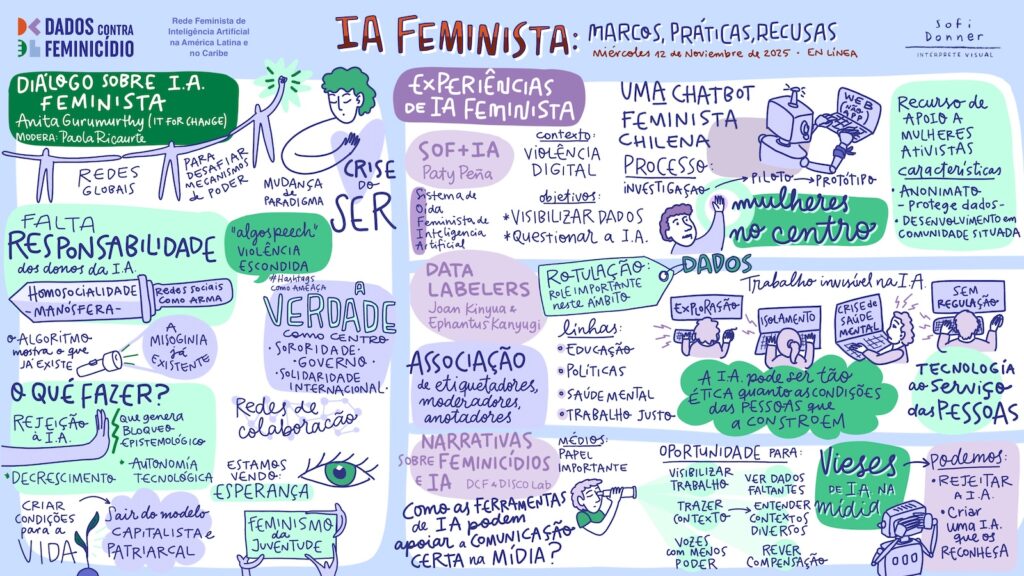 DADOS CONTRA
FEMINICÍDIO
Rede Feminista de
Inteligência Artificial
na América Latina e
no Caribe
IA FEMINISTA: MARCOS, PRÁTICAS, RECUSAS
Miércoles 12 de Noviembre de 2025 · EN LÍNEA
Sofi
Donner
INTERPRETE VISUAL
DIÁLOGO SOBRE I.A.
FEMINISTA
Anita Gurumurthy (IT FOR CHANGE)
MODERA: Paola Ricaurte
REDES
GLOBAIS
PARA
DESAFIAR
MECANISMOS
DE PODER
MUDANÇA
DE
PARADIGMA
CRISE
DO
SER
FALTA
RESPONSABILIDADE
dos donos da I.A.
HOMOSOCIALIDADE
-MANÓSFERA-
Redes sociais
COMO ARMA
"algospeech"
VIOLÊNCIA
ESCONDIDA
#Hashtags
COMO AMEAÇA
O ALGORITMO
mostra o que
JÁ EXISTE
A
MISOGINIA
JÁ
EXISTENTE
A
VERDADE
COMO CENTRO
• SORORIDADE
• GOVERNO
• SOLIDARIDADE
INTERNACIONAL
O QUÉ FAZER?
REJEIÇÃO
À I.A.
que genera
BLOQUEO
EPISTEMOLÓGICO
• DECRESCIMENTO
• AUTONOMIA
TECNOLÓGICA
Redes de
colaboração
ESTAMOS
VENDO:
ESPERANÇA
CRIAR
CONDIÇÕES
para a
VIDA
Sair do modelo
CAPITALISTA e
PATRIARCAL
FEMINISMO
da
JUVENTUDE
EXPERIÊNCIAS
DE IA FEMINISTA
SOF+IA
Paty Peña
Sistema de
Oída
Feminista de
Inteligência
Artificial
contexto:
VIOLÊNCIA
DIGITAL
objetivos:
*VISIBILIZAR DADOS
*Questionar a I.A.
UMA CHATBOT
FEMINISTA
CHILENA
PROCESSO:
INVESTIGAÇÃO
PILOTO
PROTÓTIPO
WEB
NÃO
APP
mulheres
no centro
Recurso de
APOIO A
MULHERES
ATIVISTAS
características
• ANONIMATO
- Protege dados-
• DESENVOLVIMENTO em
COMUNIDADE SITUADA
DATA
LABELERS
Joan Kinyua &
Ephantus Kanyugi
ROTULAÇÃO:
ROL IMPORTANTE
neste ÂMBITO
DADOS
ASSOCIAÇÃO
de etiquetadores,
moderadores,
anotadores
linhas:
• EDUCAÇÃO
• POLÍTICAS
• SAÚDE MENTAL
• TRABALHO JUSTO
Trabalho invisível na I.A.
EXPLORAÇÃO
ISOLAMENTO
CRISE de
SAÚDE
MENTAL
SEM
REGULAÇÃO
A I.A. pode ser tão
ÉTICA quanto as CONDIÇÕES
DAS PESSOAS que
a CONSTROEM
TECNOLOGÍA
ao SERVIÇO
das PESSOAS
NARRATIVAS
SOBRE FEMINICÍDIOS
e IA DCF & DISCO Lab
MÉDIOS:
PAPEL
IMPORTANTE
Como as FERRAMENTAS
de IA podem
apoiar a COMUNICAÇÃO
CERTA na MÍDIA?
OPORTUNIDADE PARA:
VISIBILIZAR
TRABALHO
VER DADOS
FALTANTES
TRAZER
CONTEXTO
ENTENDER
CONTEXTOS
DIVERSOS
VOZES
COM MENOS
PODER
REVER
COMPENSAÇÃO
Vieses
DE I.A. NA
mídia
PODEMOS:
• REJEITAR
A I.A.
• Criar
UMA I.A.
QUE OS
RECONHEÇA